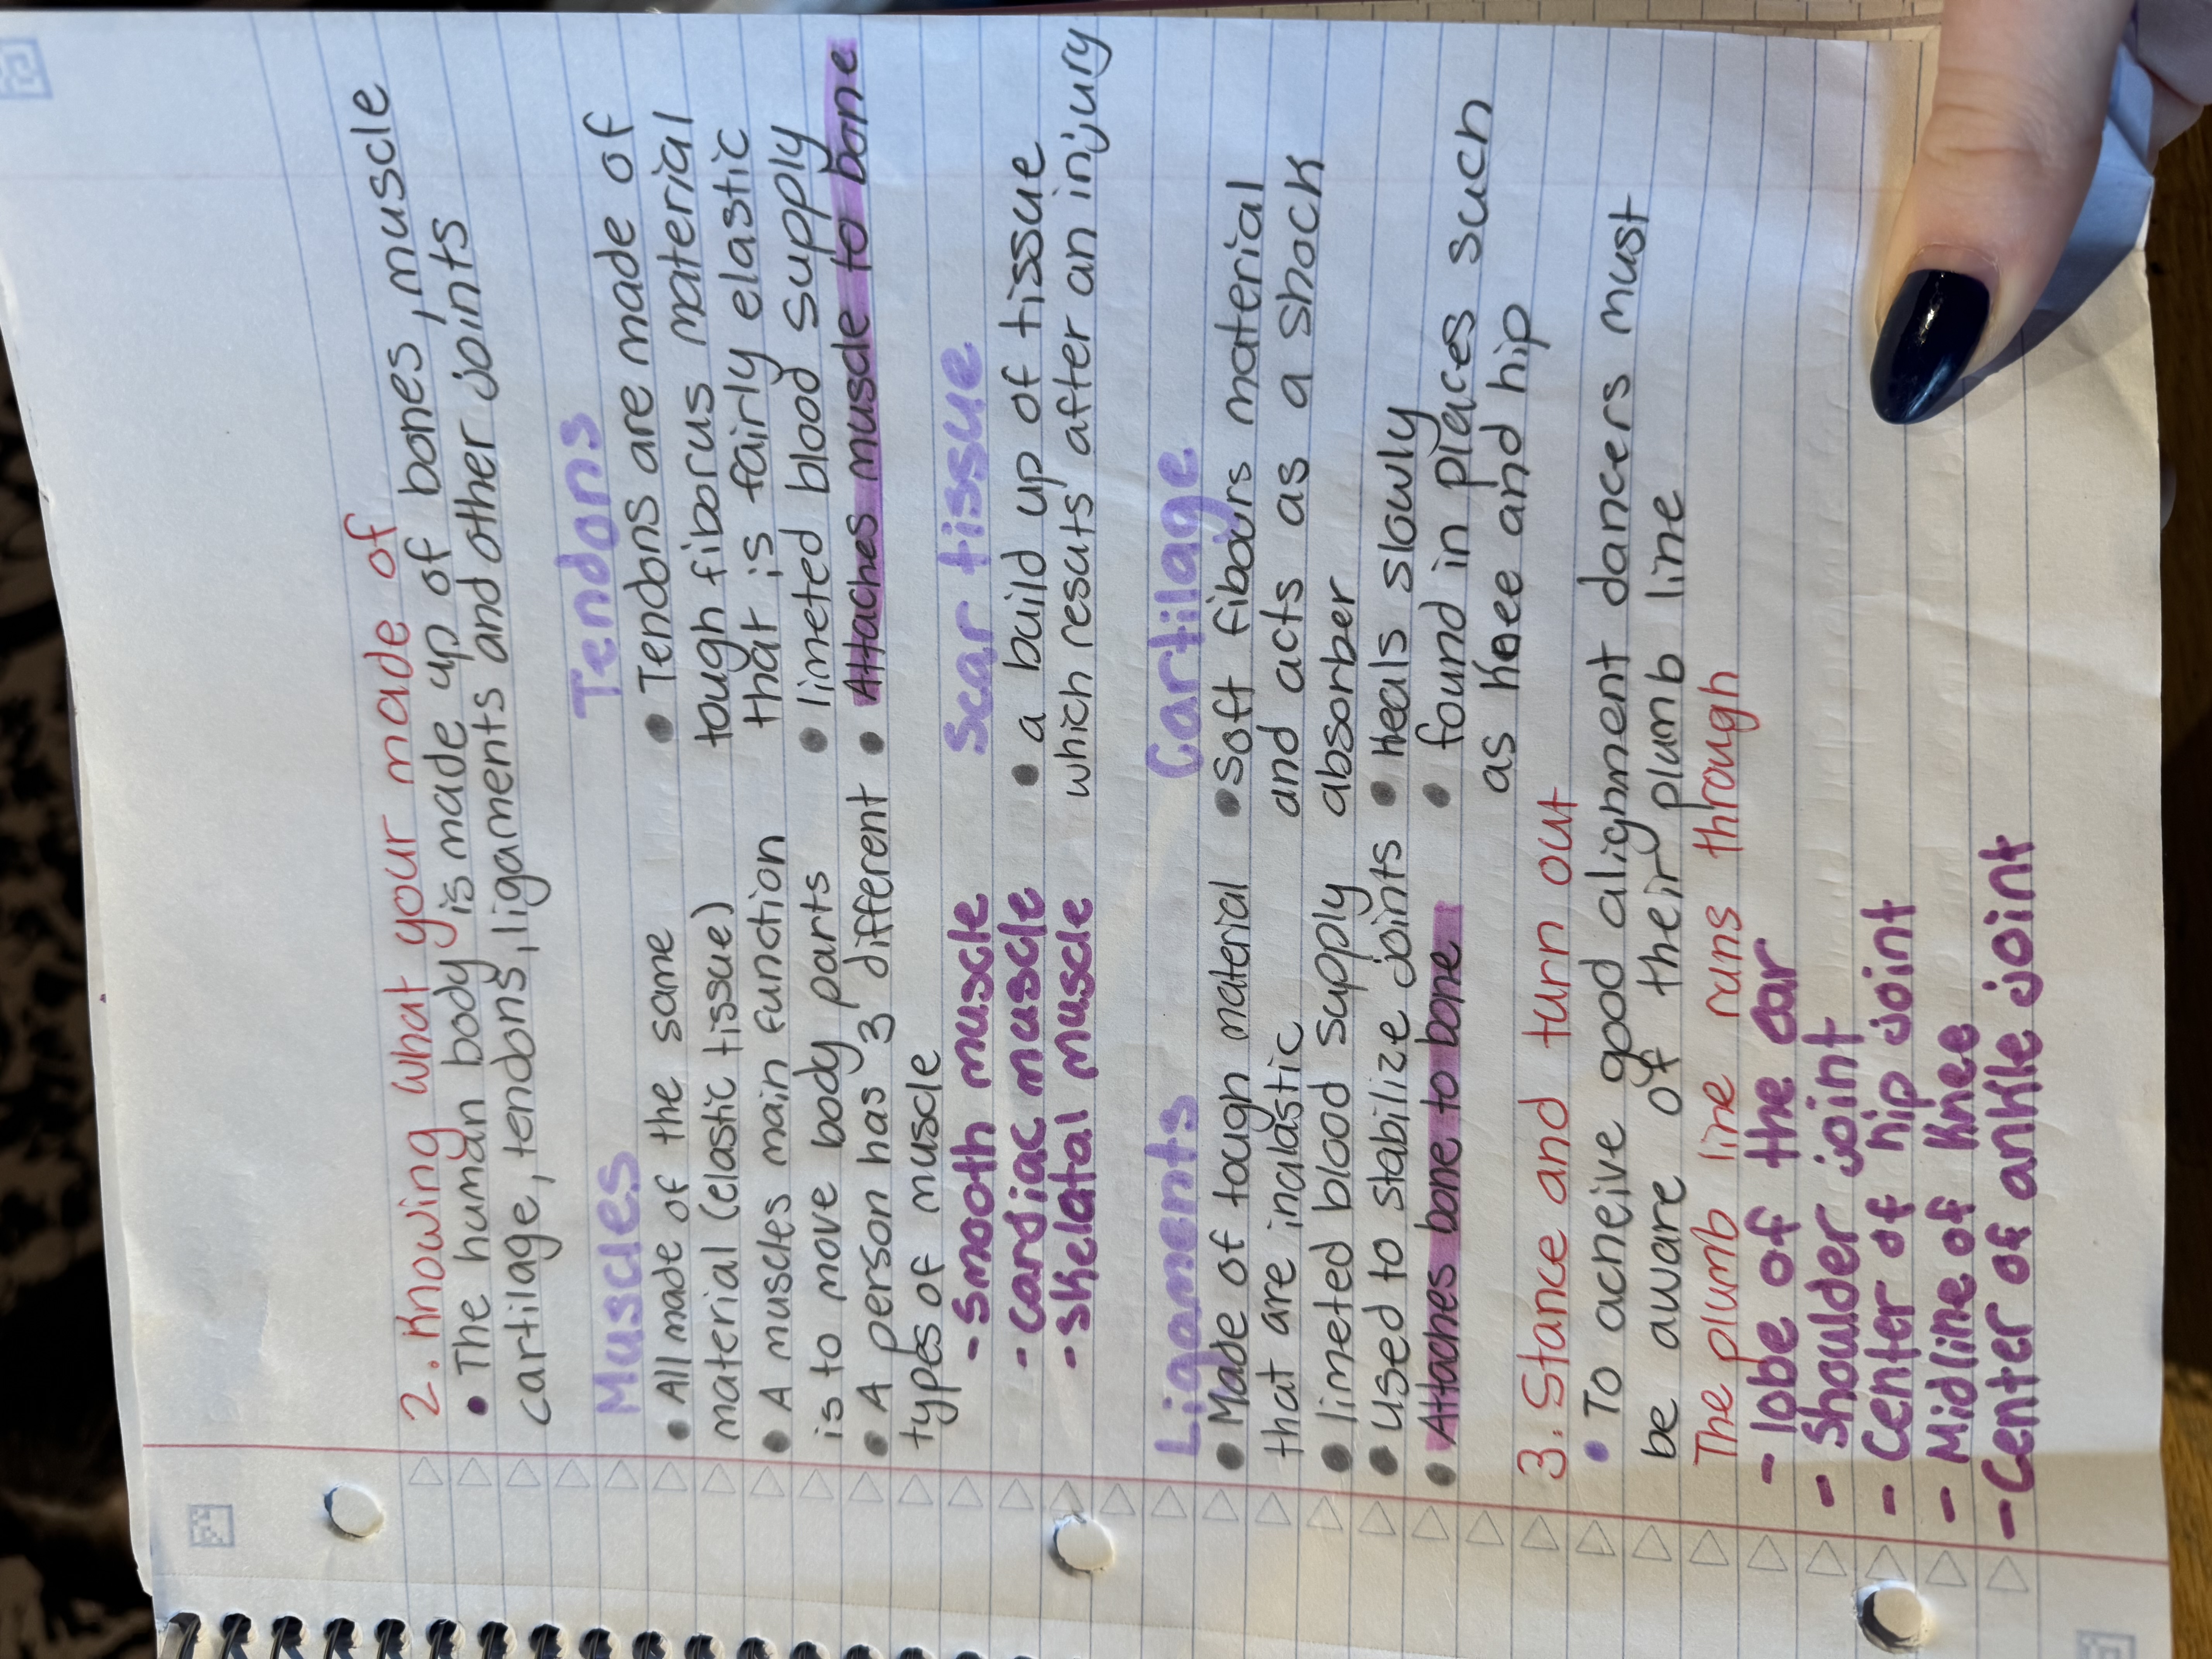 2. Knowing what your made of
• The human body is made up of bones, muscle
cartilage, tendons, ligaments and other joints
Muscles
• All made of the same
material (elastic tissue)
• A muscles main function
is to move body parts
• A person has 3 different
types of muscle
- smooth muscle
- cardiac muscle
- skelatal muscle
Tendons
• Tendons are made of
tough fiborus material
that is fairly elastic
• limeted blood supply
• Attaches muscle to bone
Scar tissue
• a build up of tissue
which resuts after an injury
Ligaments
• Made of tough material
that are inalastic
• limeted blood supply
• used to stabilize joints
• Attaches bone to bone
Cartilage
• soft fibours material
and acts as a shock
absorber
• Heals slowly
• found in places such
as knee and hip
3. Stance and turn out
• To acheive good alignment dancers must
be aware of their plumb line
The plumb line runs through
- lobe of the ear
- Shoulder joint
- Center of hip joint
- Midline of knee
- Center of ankle joint